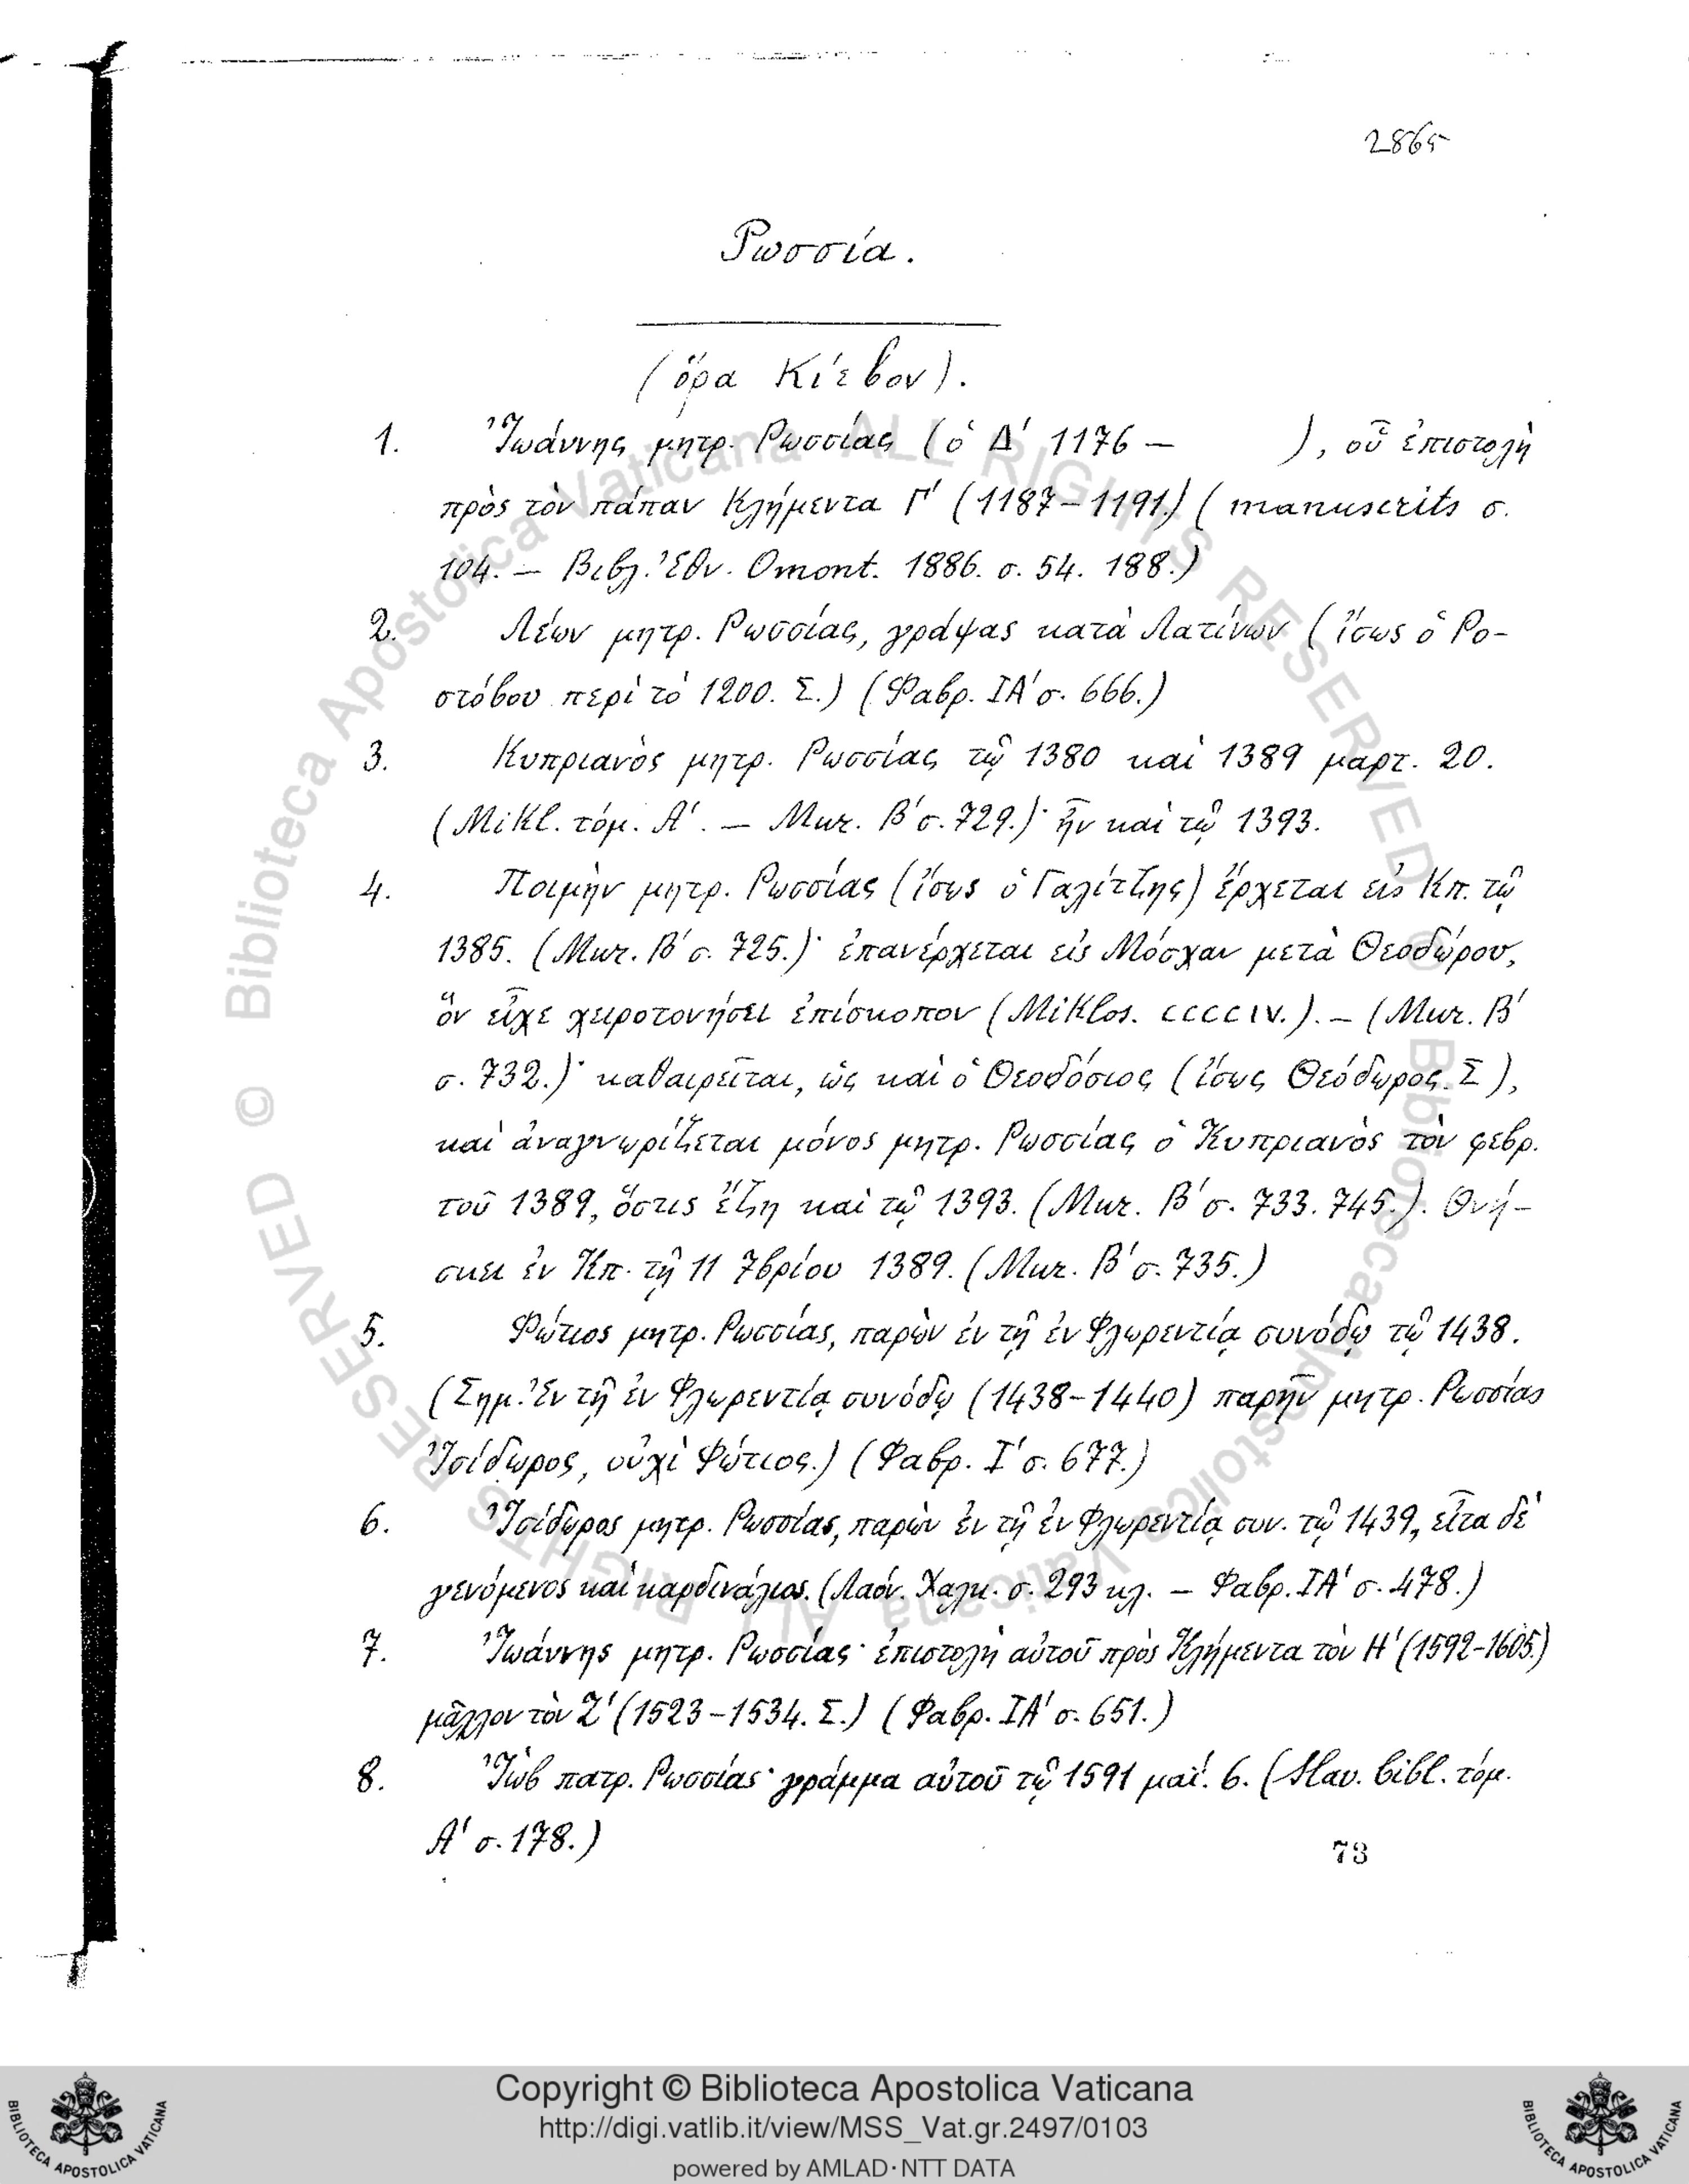 2865
Ρωσσία.
(ὅρα Κίεβον).
1. Ἰωάννης μητρ. Ρωσσίας (ὁ Δ' 1176 — ), οὗ ἐπιστολὴ
πρὸς τὸν πάπαν Κλήμεντα Γ' (1187-1191.) (manuscrits σ.
104. — Βιβλ. Ἐθν. Omont. 1886. σ. 54. 188.)
2. Λέων μητρ. Ρωσσίας, γράψας κατὰ Λατίνων (ἴσως ὁ Ρο-
στόβου περὶ τὸ 1200. Σ.) (Φαβρ. ΙΑ' σ. 666.)
3. Κυπριανὸς μητρ. Ρωσσίας τῷ 1380 καὶ 1389 μαρτ. 20.
(Mikl. τόμ. Α'. — Mur. Β' σ. 729.)· ἦν καὶ τῷ 1393.
4. Ποιμὴν μητρ. Ρωσσίας (ἴσως ὁ Γαλίτζης) ἔρχεται εἰς Κπ. τῷ
1385. (Mur. Β' σ. 725.)· ἐπανέρχεται εἰς Μόσχαν μετὰ Θεοδώρου,
ὃν εἶχε χειροτονήσει ἐπίσκοπον (Miklos. CCCCIV.). — (Mur. Β'
σ. 732.)· καθαιρεῖται, ὡς καὶ ὁ Θεοδόσιος (ἴσως Θεόδωρος. Σ),
καὶ ἀναγνωρίζεται μόνος μητρ. Ρωσσίας ὁ Κυπριανὸς τὸν φεβρ.
τοῦ 1389, ὅστις ἔζη καὶ τῷ 1393. (Mur. Β' σ. 733. 745.). Θνή-
σκει ἐν Κπ. τῇ 11 7βρίου 1389. (Mur. Β' σ. 735.)
5. Φώτιος μητρ. Ρωσσίας, παρὼν ἐν τῇ ἐν Φλωρεντίᾳ συνόδῳ τῷ 1438.
(Σημ. Ἐν τῇ ἐν Φλωρεντίᾳ συνόδῳ (1438-1440) παρῆν μητρ. Ρωσσίας
Ἰσίδωρος, οὐχὶ Φώτιος.) (Φαβρ. Ι' σ. 677.)
6. Ἰσίδωρος μητρ. Ρωσσίας, παρὼν ἐν τῇ ἐν Φλωρεντίᾳ συν. τῷ 1439, εἶτα δὲ
γενόμενος καὶ καρδινάλιος. (Λαόν. Χαλκ. σ. 293 κλ. — Φαβρ. ΙΑ' σ. 478.)
7. Ἰωάννης μητρ. Ρωσσίας· ἐπιστολὴ αὐτοῦ πρὸς Κλήμεντα τὸν Η' (1592-1605.)
μᾶλλον τὸν Ζ' (1523-1534. Σ.) (Φαβρ. ΙΑ' σ. 651.)
8. Ἰὼβ πατρ. Ρωσσίας· γράμμα αὐτοῦ τῷ 1591 μαΐ. 6. (Slav. bibl. τόμ.
Α' σ. 178.)
73
© Biblioteca Apostolica Vaticana ALL RIGHTS RESERVED © Biblioteca Apostolica Vaticana ALL RIGHTS RESERVED
BIBLIOTECA APOSTOLICA VATICANA
Copyright © Biblioteca Apostolica Vaticana
http://digi.vatlib.it/view/MSS_Vat.gr.2497/0103
powered by AMLAD·NTT DATA
BIBLIOTECA APOSTOLICA VATICANA